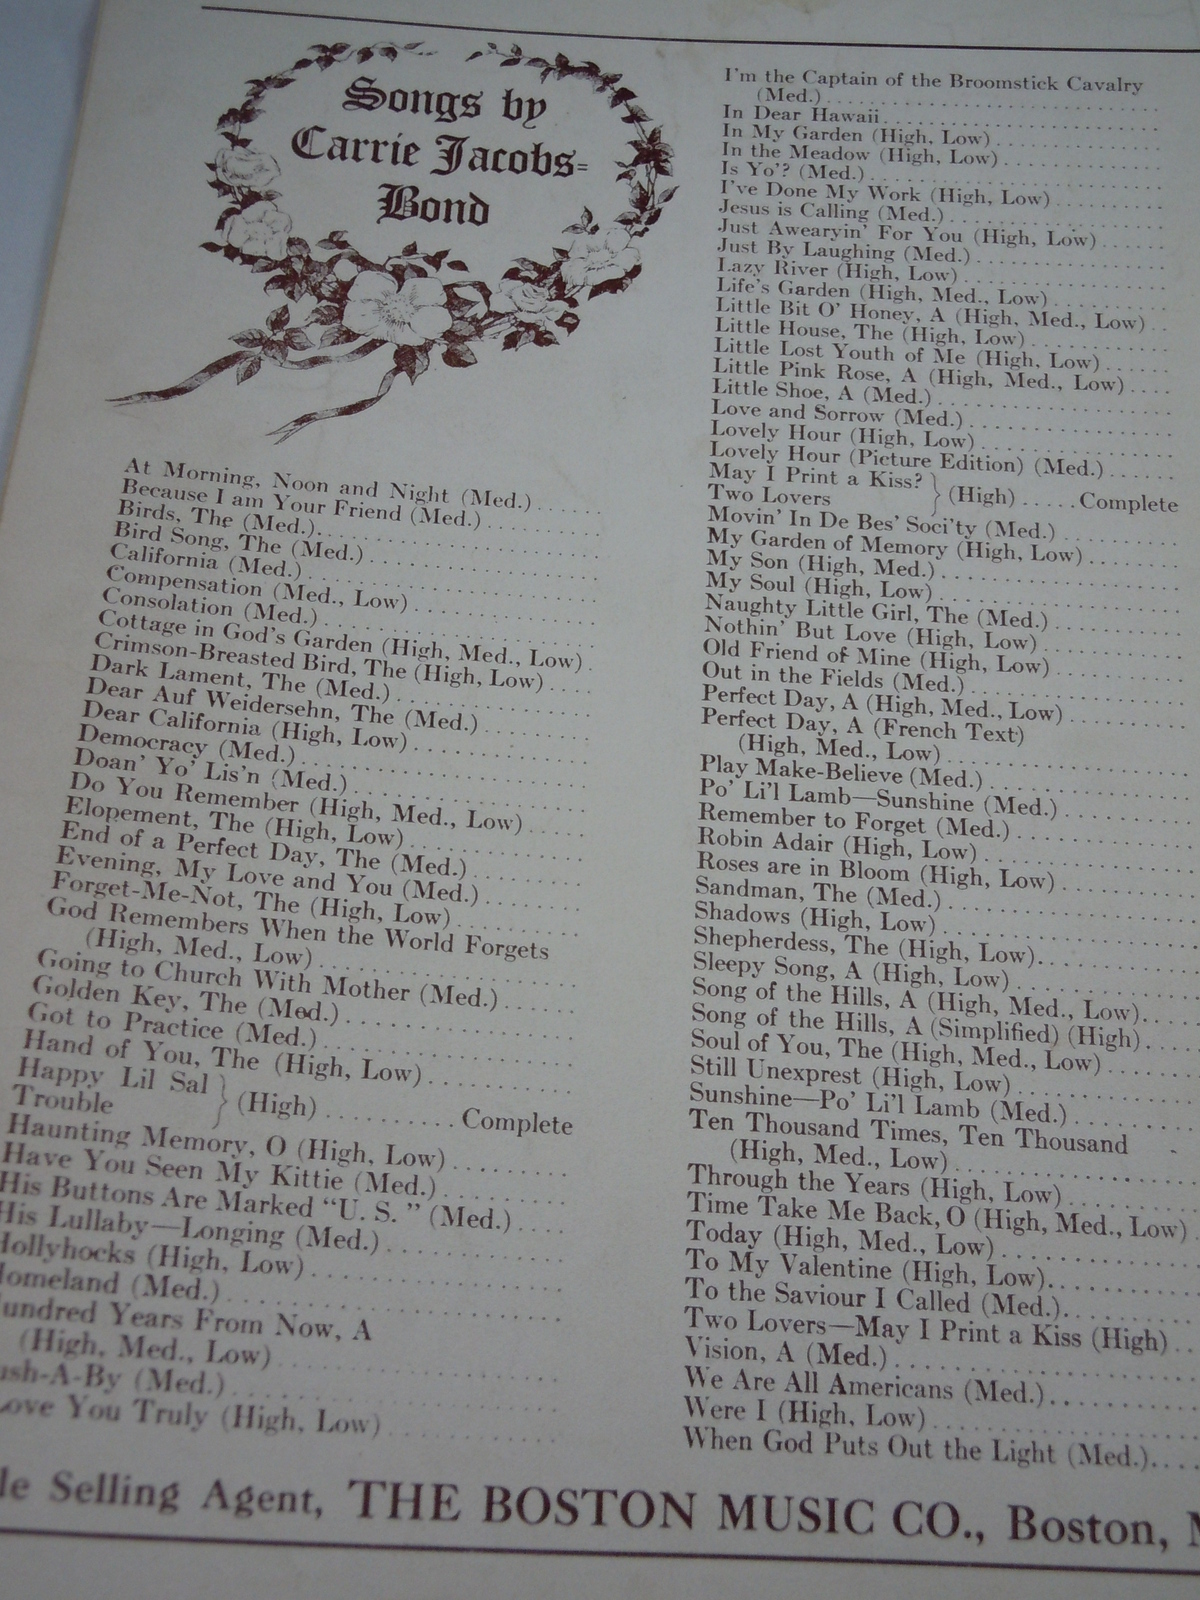 Songs by
Carrie Jacobs-
Bond
At Morning, Noon and Night (Med.)
Because I am Your Friend (Med.)
Birds, The (Med.)
Bird Song, The (Med.)
California (Med.)
Compensation (Med., Low)
Consolation (Med.)
Cottage in God's Garden (High, Med., Low)
Crimson-Breasted Bird, The (High, Low)
Dark Lament, The (Med.)
Dear Auf Weidersehn, The (Med.)
Dear California (High, Low)
Democracy (Med.)
Doan' Yo' Lis'n (Med.)
Do You Remember (High, Med., Low)
Elopement, The (High, Low)
End of a Perfect Day, The (Med.)
Evening, My Love and You (Med.)
Forget-Me-Not, The (High, Low)
God Remembers When the World Forgets
(High, Med., Low)
Going to Church With Mother (Med.)
Golden Key, The (Med.)
Got to Practice (Med.)
Hand of You, The (High, Low)
Happy Lil Sal
Trouble
(High) Complete
Haunting Memory, O (High, Low)
Have You Seen My Kittie (Med.)
His Buttons Are Marked "U. S." (Med.)
His Lullaby—Longing (Med.)
Hollyhocks (High, Low)
Homeland (Med.)
undred Years From Now, A
(High, Med., Low)
ush-A-By (Med.)
Love You Truly (High, Low)
I'm the Captain of the Broomstick Cavalry
(Med.)
In Dear Hawaii
In My Garden (High, Low)
In the Meadow (High, Low)
Is Yo'? (Med.)
I've Done My Work (High, Low)
Jesus is Calling (Med.)
Just Awearyin' For You (High, Low)
Just By Laughing (Med.)
Lazy River (High, Low)
Life's Garden (High, Med., Low)
Little Bit O' Honey, A (High, Med., Low)
Little House, The (High, Low)
Little Lost Youth of Me (High, Low)
Little Pink Rose, A (High, Med., Low)
Little Shoe, A (Med.)
Love and Sorrow (Med.)
Lovely Hour (High, Low)
Lovely Hour (Picture Edition) (Med.)
May I Print a Kiss?
Two Lovers
(High) Complete
Movin' In De Bes' Soci'ty (Med.)
My Garden of Memory (High, Low)
My Son (High, Med.)
My Soul (High, Low)
Naughty Little Girl, The (Med.)
Nothin' But Love (High, Low)
Old Friend of Mine (High, Low)
Out in the Fields (Med.)
Perfect Day, A (High, Med., Low)
Perfect Day, A (French Text)
(High, Med., Low)
Play Make-Believe (Med.)
Po' Li'l Lamb—Sunshine (Med.)
Remember to Forget (Med.)
Robin Adair (High, Low)
Roses are in Bloom (High, Low)
Sandman, The (Med.)
Shadows (High, Low)
Shepherdess, The (High, Low)
Sleepy Song, A (High, Low)
Song of the Hills, A (High, Med., Low)
Song of the Hills, A (Simplified) (High)
Soul of You, The (High, Med., Low)
Still Unexprest (High, Low)
Sunshine—Po' Li'l Lamb (Med.)
Ten Thousand Times, Ten Thousand
(High, Med., Low)
Through the Years (High, Low)
Time Take Me Back, O (High, Med., Low)
Today (High, Med., Low)
To My Valentine (High, Low)
To the Saviour I Called (Med.)
Two Lovers—May I Print a Kiss (High)
Vision, A (Med.)
We Are All Americans (Med.)
Were I (High, Low)
When God Puts Out the Light (Med.)
le Selling Agent, THE BOSTON MUSIC CO., Boston, M